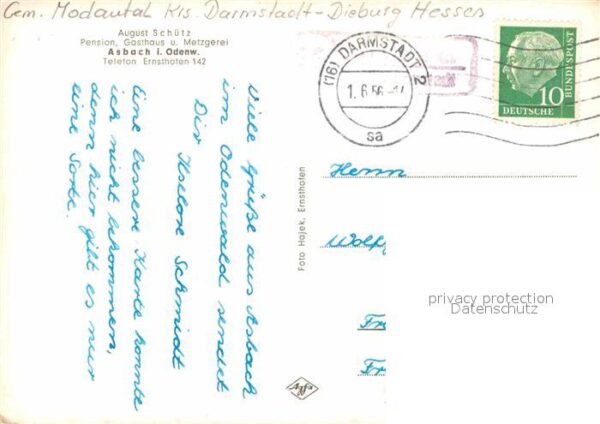 Gem. Modautal Krs. Darmstadt-Dieburg Hessen
August Schütz
Pension, Gasthaus u. Metzgerei
Asbach i. Odenw.
Telefon Ernsthofen 142
Viele Grüße aus Asbach
im Odenwald sendet
Dir Helore Schmidt
Eine bessere Karte konnte
ich nicht bekommen,
denn hier gibt es nur
eine Sorte.
Foto Hajek, Ernsthofen
(16) DARMSTADT 2
1.6.56
sa
10
BUNDESPOST
DEUTSCHE
Herrn
Wolf
Fr
Fr
privacy protection
Datenschutz